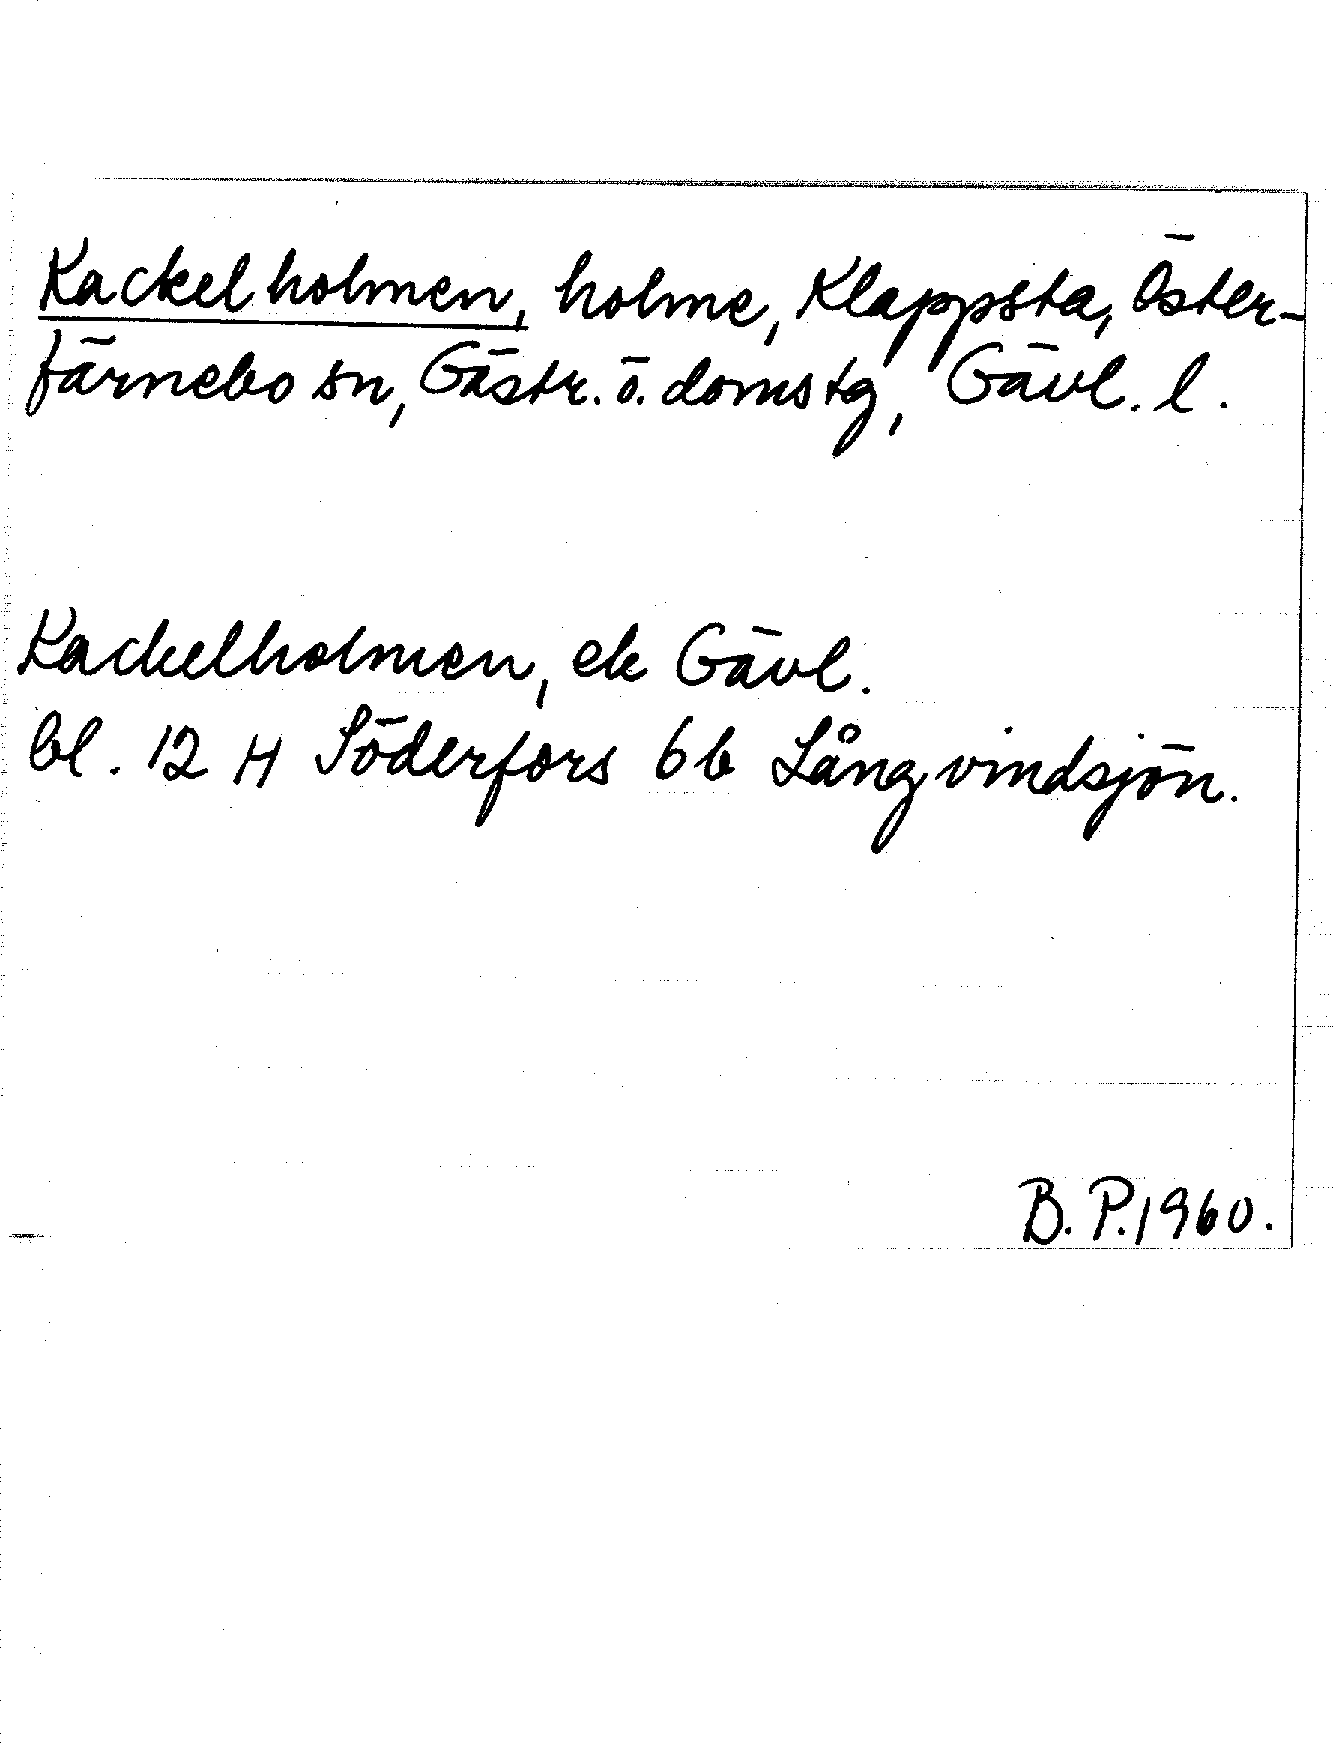 Kackelholmen, holme, Klappsta, Öster-
färnebo sn, Gästr. ö. domstg, Gävl. l.
Kackelholmen, ek Gävl.
bl. 12 H Söderfors 6b Långvindsjön.
B. P. 1960.